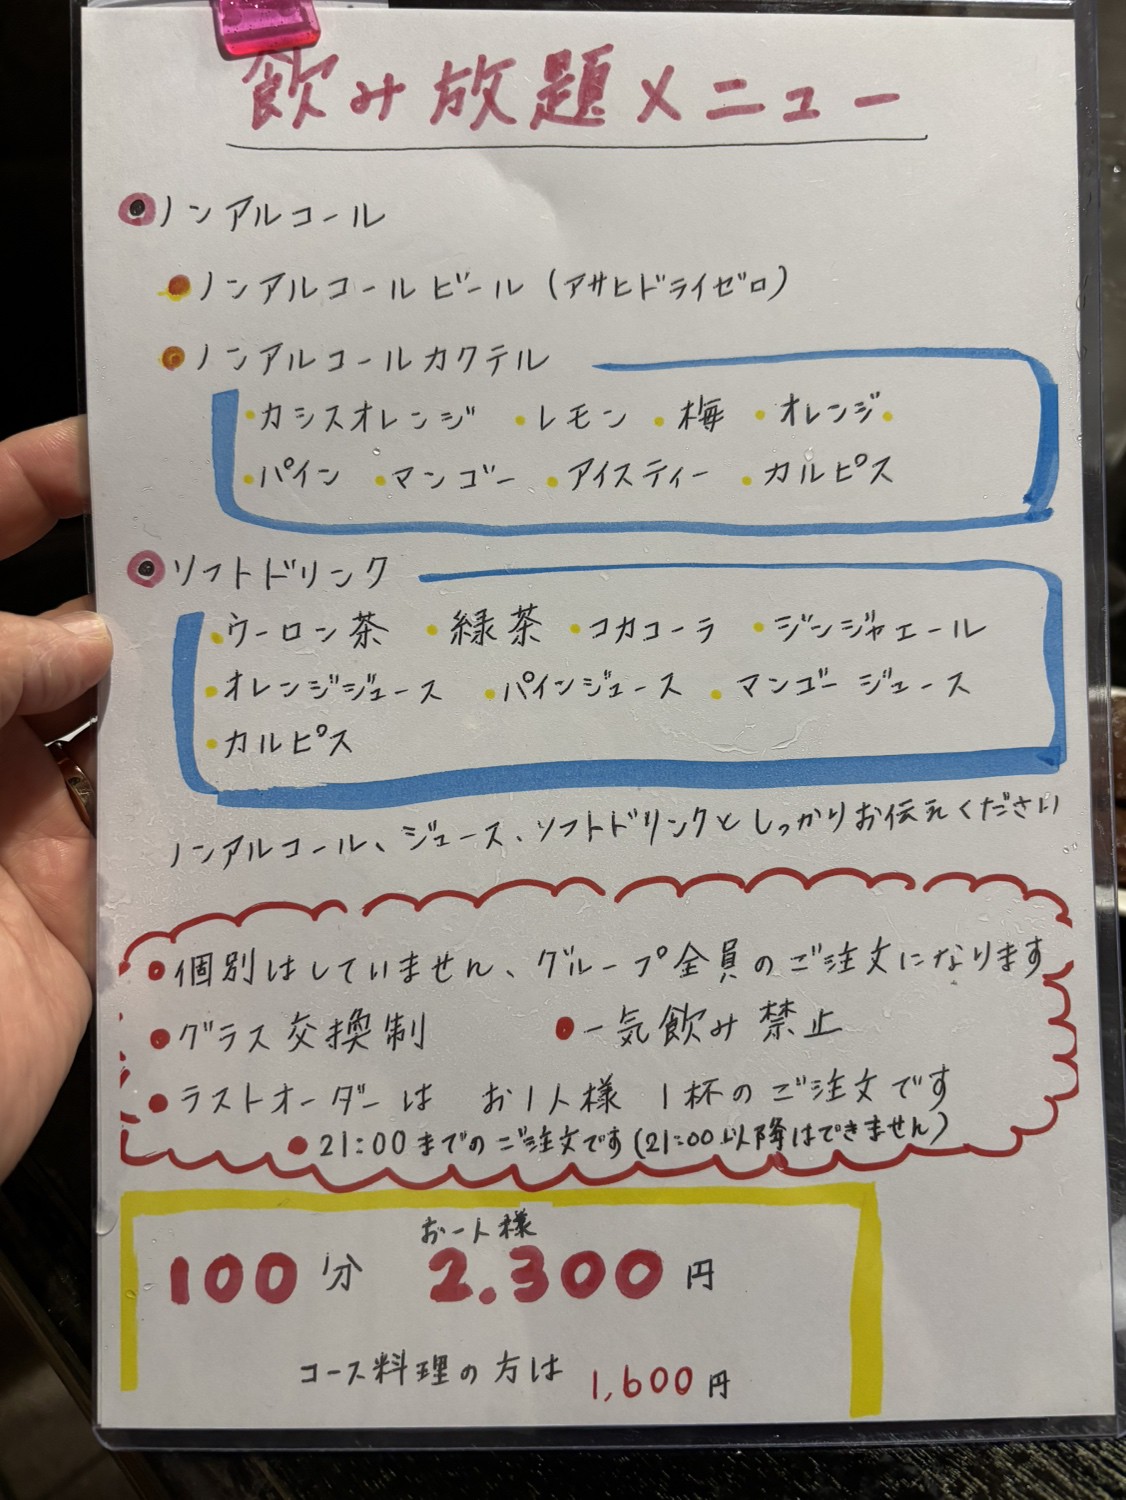 飲み放題メニュー
ノンアルコール
ノンアルコールビール (アサヒドライゼロ)
ノンアルコールカクテル
・カシスオレンジ ・レモン ・梅 ・オレンジ・
・パイン ・マンゴー ・アイスティー ・カルピス
ソフトドリンク
・ウーロン茶 ・緑茶 ・コカコーラ ・ジンジャエール
・オレンジジュース ・パインジュース ・マンゴージュース
・カルピス
ノンアルコール、ジュース、ソフトドリンクとしっかりお伝えください
●個別はしていません、グループ全員のご注文になります
●グラス交換制 ●一気飲み禁止
●ラストオーダーは お1人様 1杯のご注文です
●21:00までのご注文です(21:00以降はできません)
お一人様
100分 2.300円
コース料理の方は 1,600円